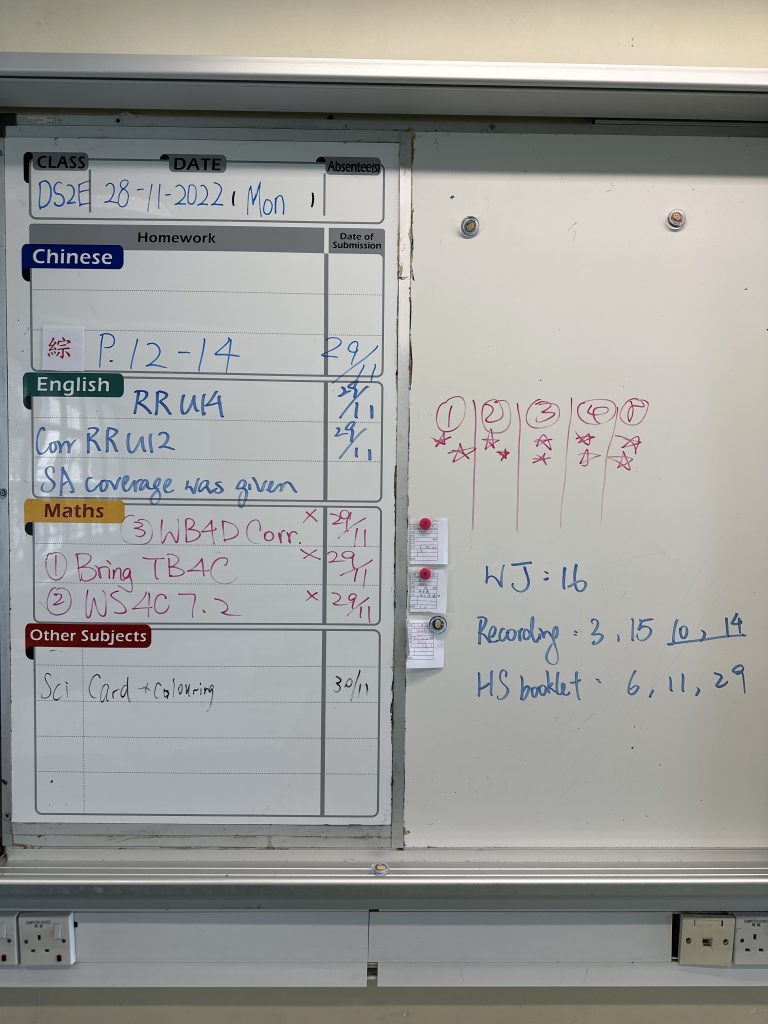 CLASS DATE Absentees
DS2E 28-11-2022 ( Mon )
Homework Date of Submission
Chinese
綜 P. 12-14 29/11
English
RR U14 29/11
Corr RR U12 29/11
SA coverage was given
Maths
③ WB4D Corr. × 29/11
① Bring TB4C × 29/11
② WS4C 7.2 × 29/11
Other Subjects
Sci Card + Colouring 30/11
① ② ③ ④ ⑤
WJ : 16
Recording : 3, 15 10, 14
HS booklet : 6, 11, 29